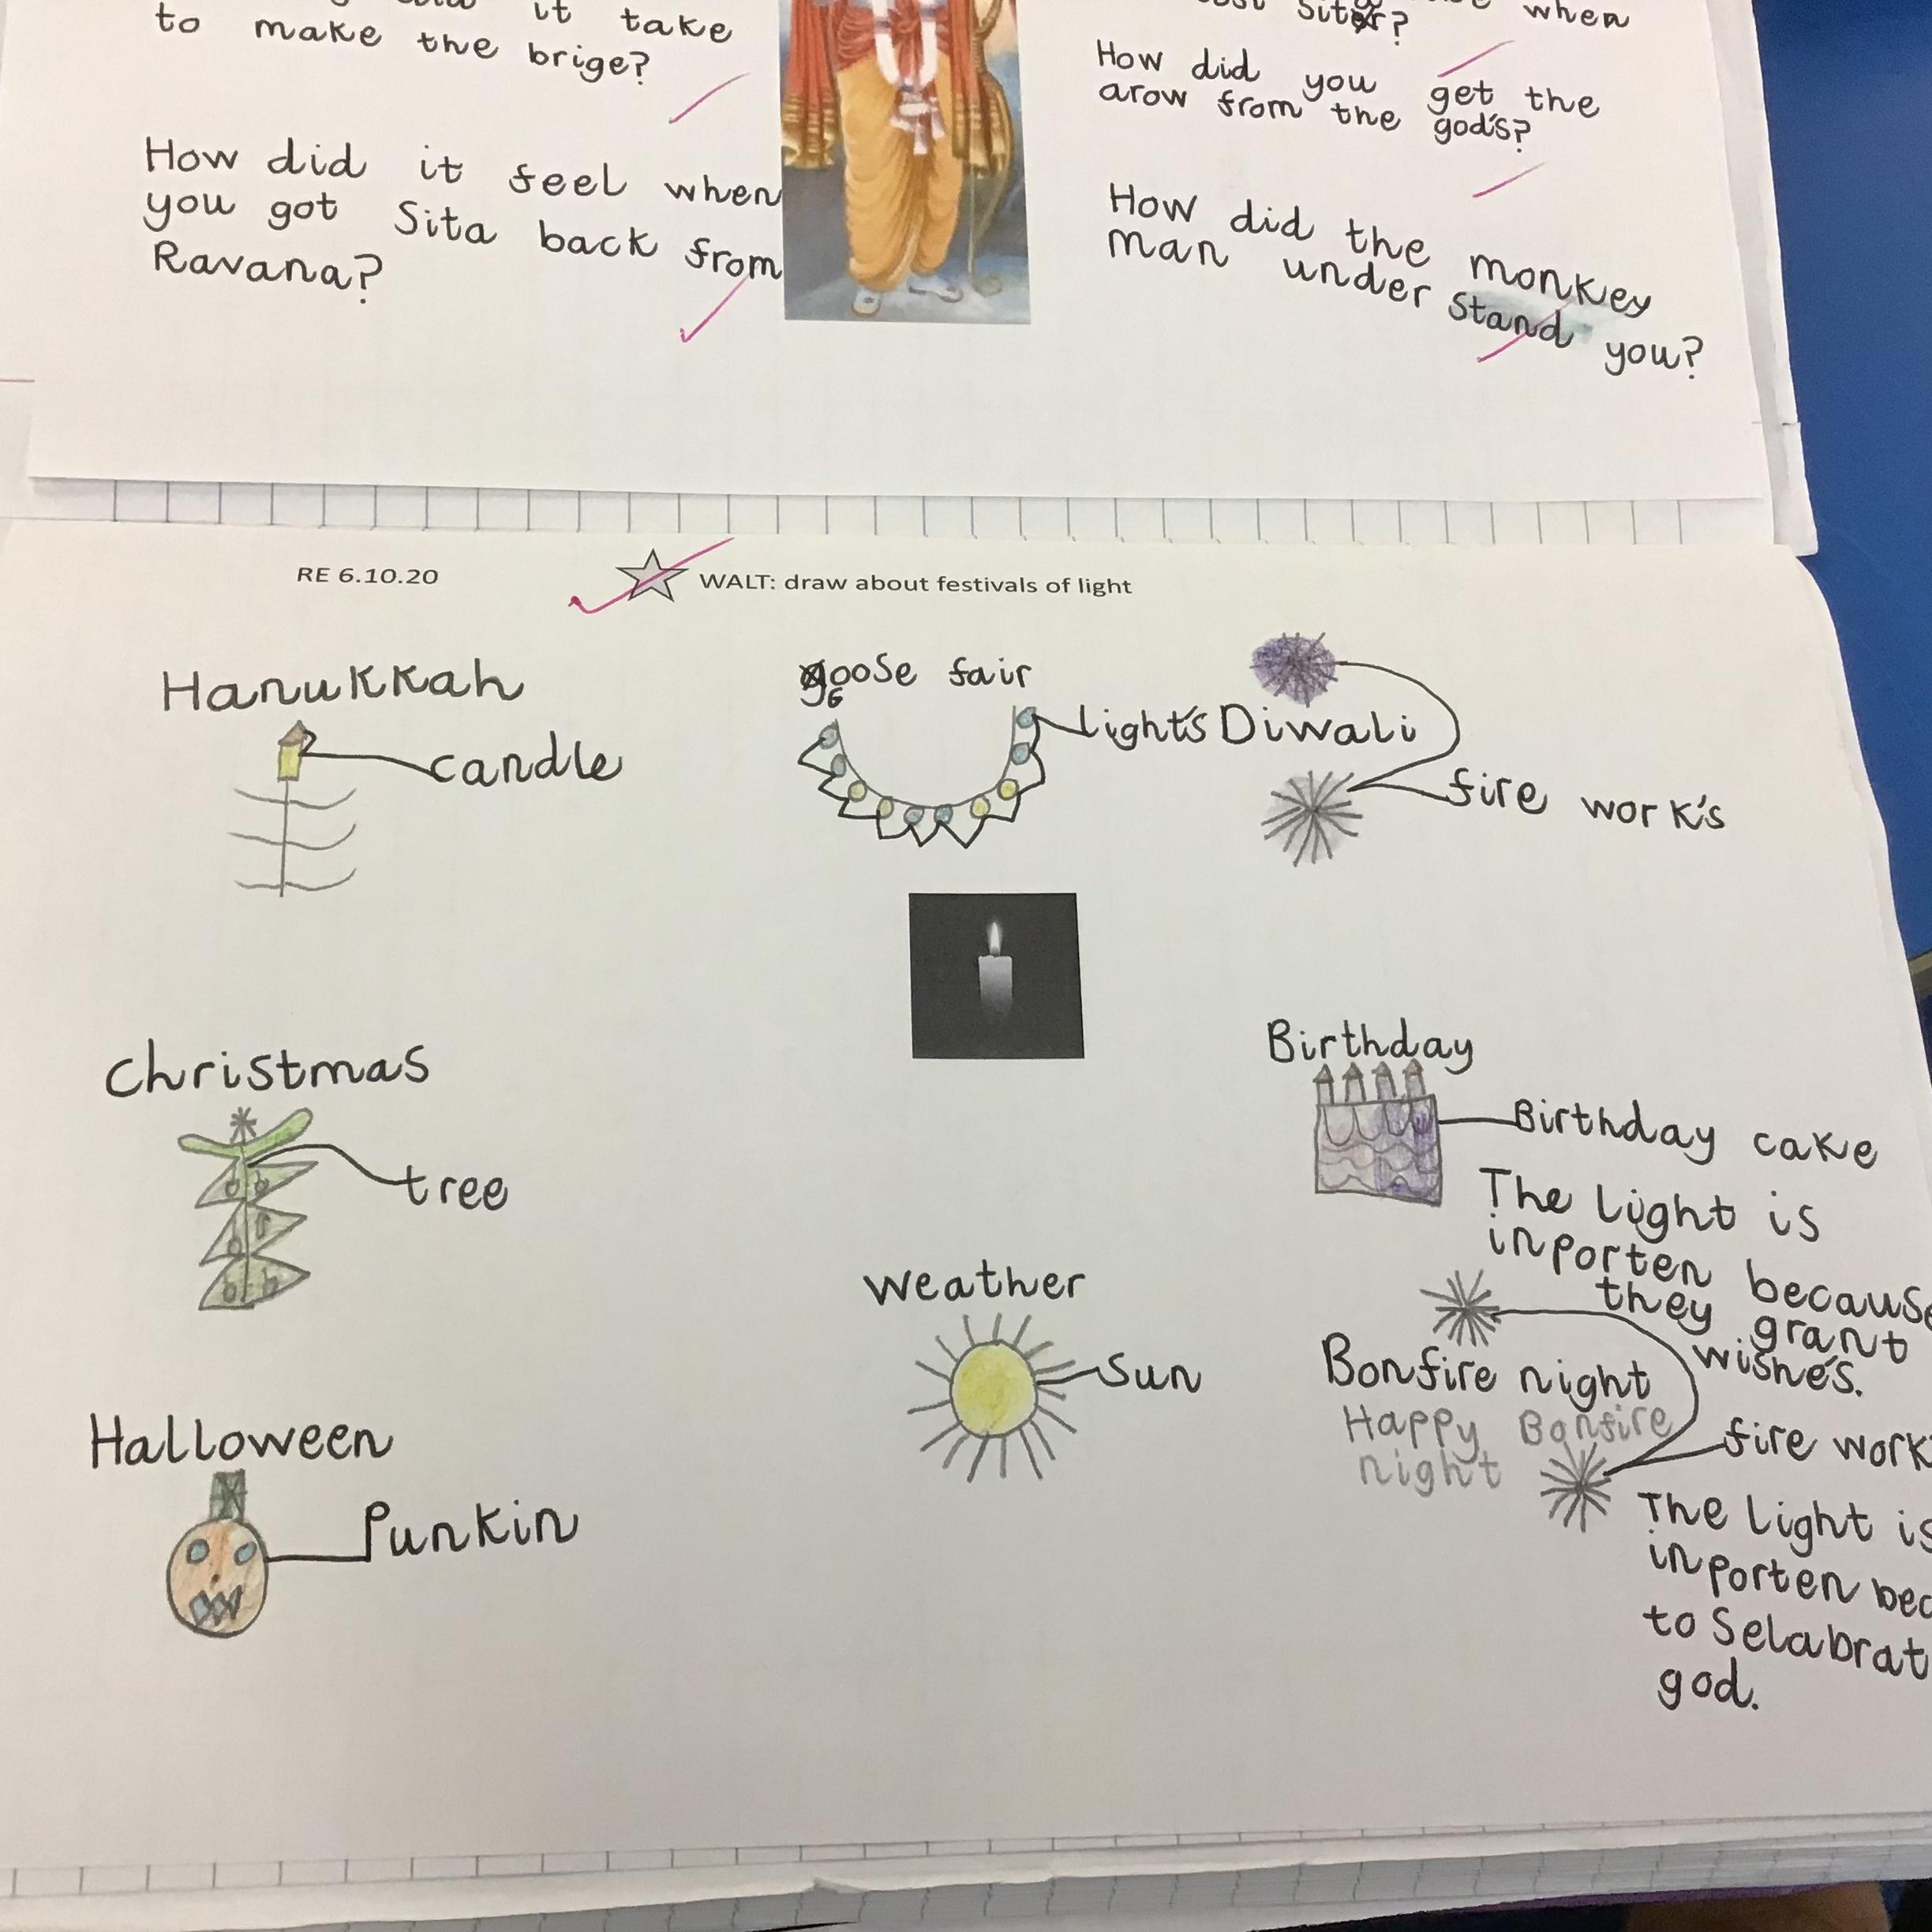 it take
to make the brige?
How did it feel when
you got Sita back from
Ravana?
when
How did you get the
arow from the god's?
How did the monkey
man under stand you?
RE 6.10.20
WALT: draw about festivals of light
Hanukkah
candle
goose fair
light's
Diwali
fire work's
Christmas
tree
Birthday
Birthday cake
The light is
inporten because
they grant
wishe's.
Weather
sun
Bonfire night
Happy Bonfire
night
fire work
The light is
inporten bec
to Selabrat
god.
Halloween
Punkin